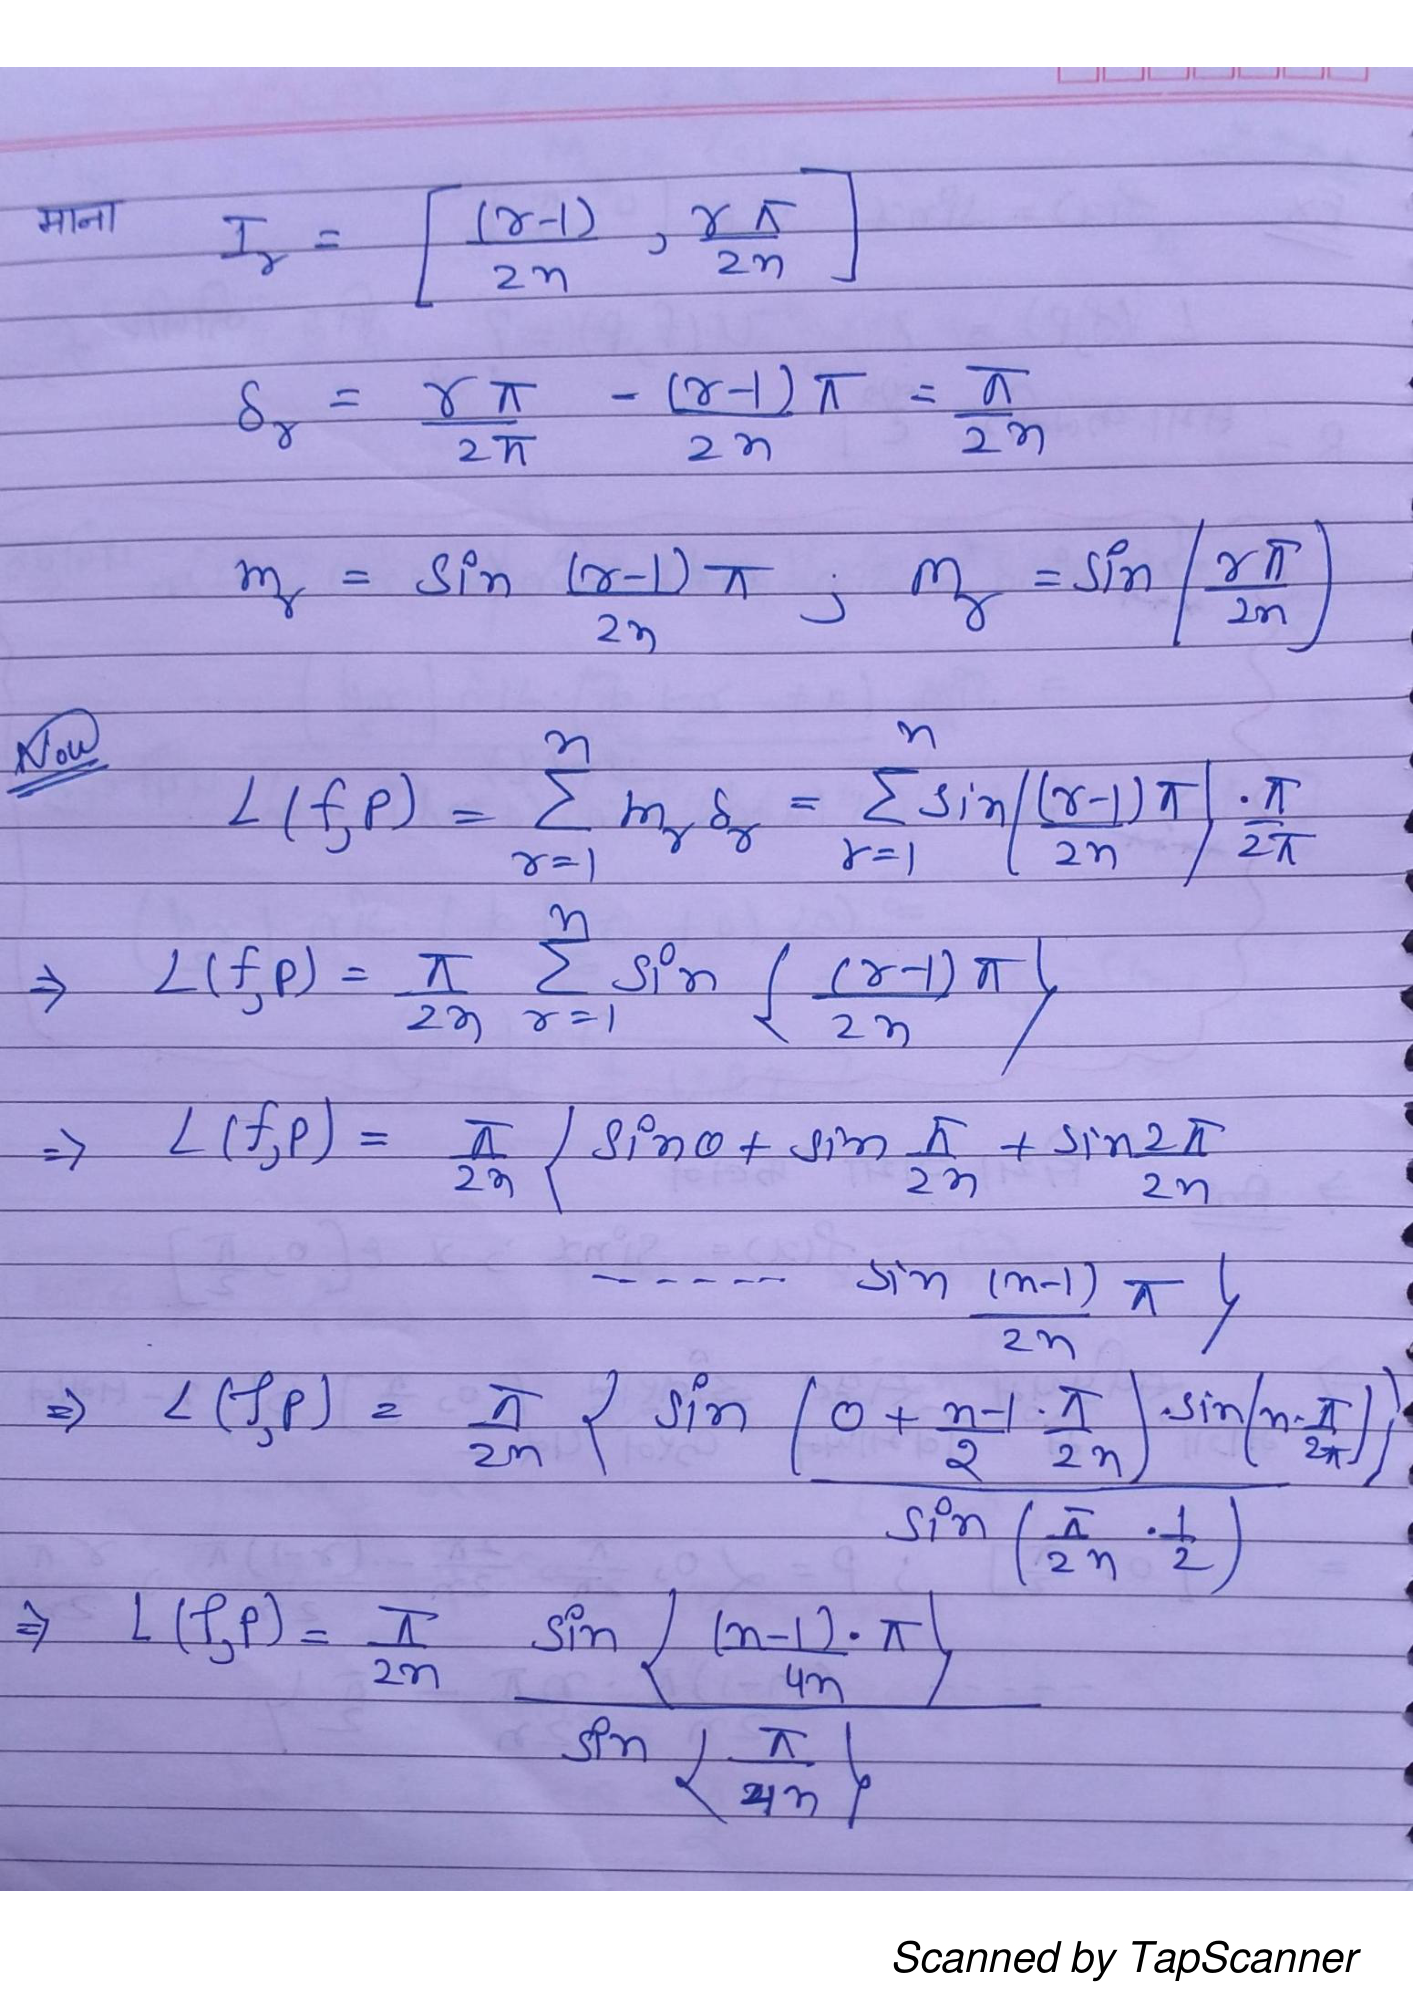 माना I_r = [ (r-1)/2n , rπ/2n ]
δ_r = rπ/2π - (r-1)π/2n = π/2n
m_r = sin (r-1)π/2n ; M_r = sin(rπ/2n)
Now
L(f,P) = n∑r=1 m_r δ_r = n∑r=1 sin((r-1)π/2n) . π/2π
⇒ L(f,P) = π/2n n∑r=1 sin { (r-1)π/2n }
⇒ L(f,P) = π/2n { sin0 + sin π/2n + sin 2π/2n
------ sin (n-1)/2n π }
⇒ L(f,P) = π/2n { sin (0 + n-1/2 . π/2n) . sin(n . π/2π) / sin (π/2n . 1/2) }
⇒ L(f,P) = π/2n sin { (n-1).π/4n } / sin { π/4n }
Scanned by TapScanner